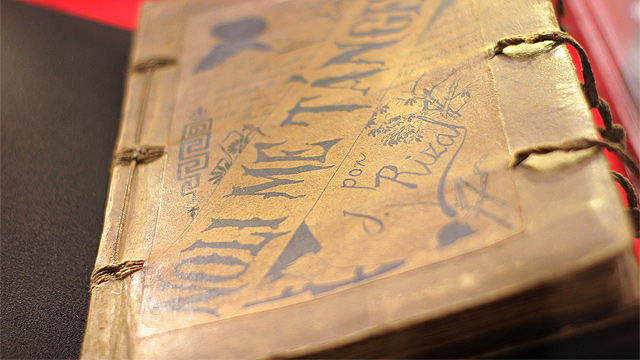 NOLI ME TÁNGE
por
J. Rizal